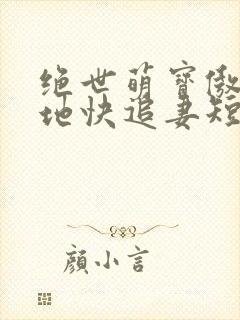 绝世萌寶傲
地快追妻短
顏小言